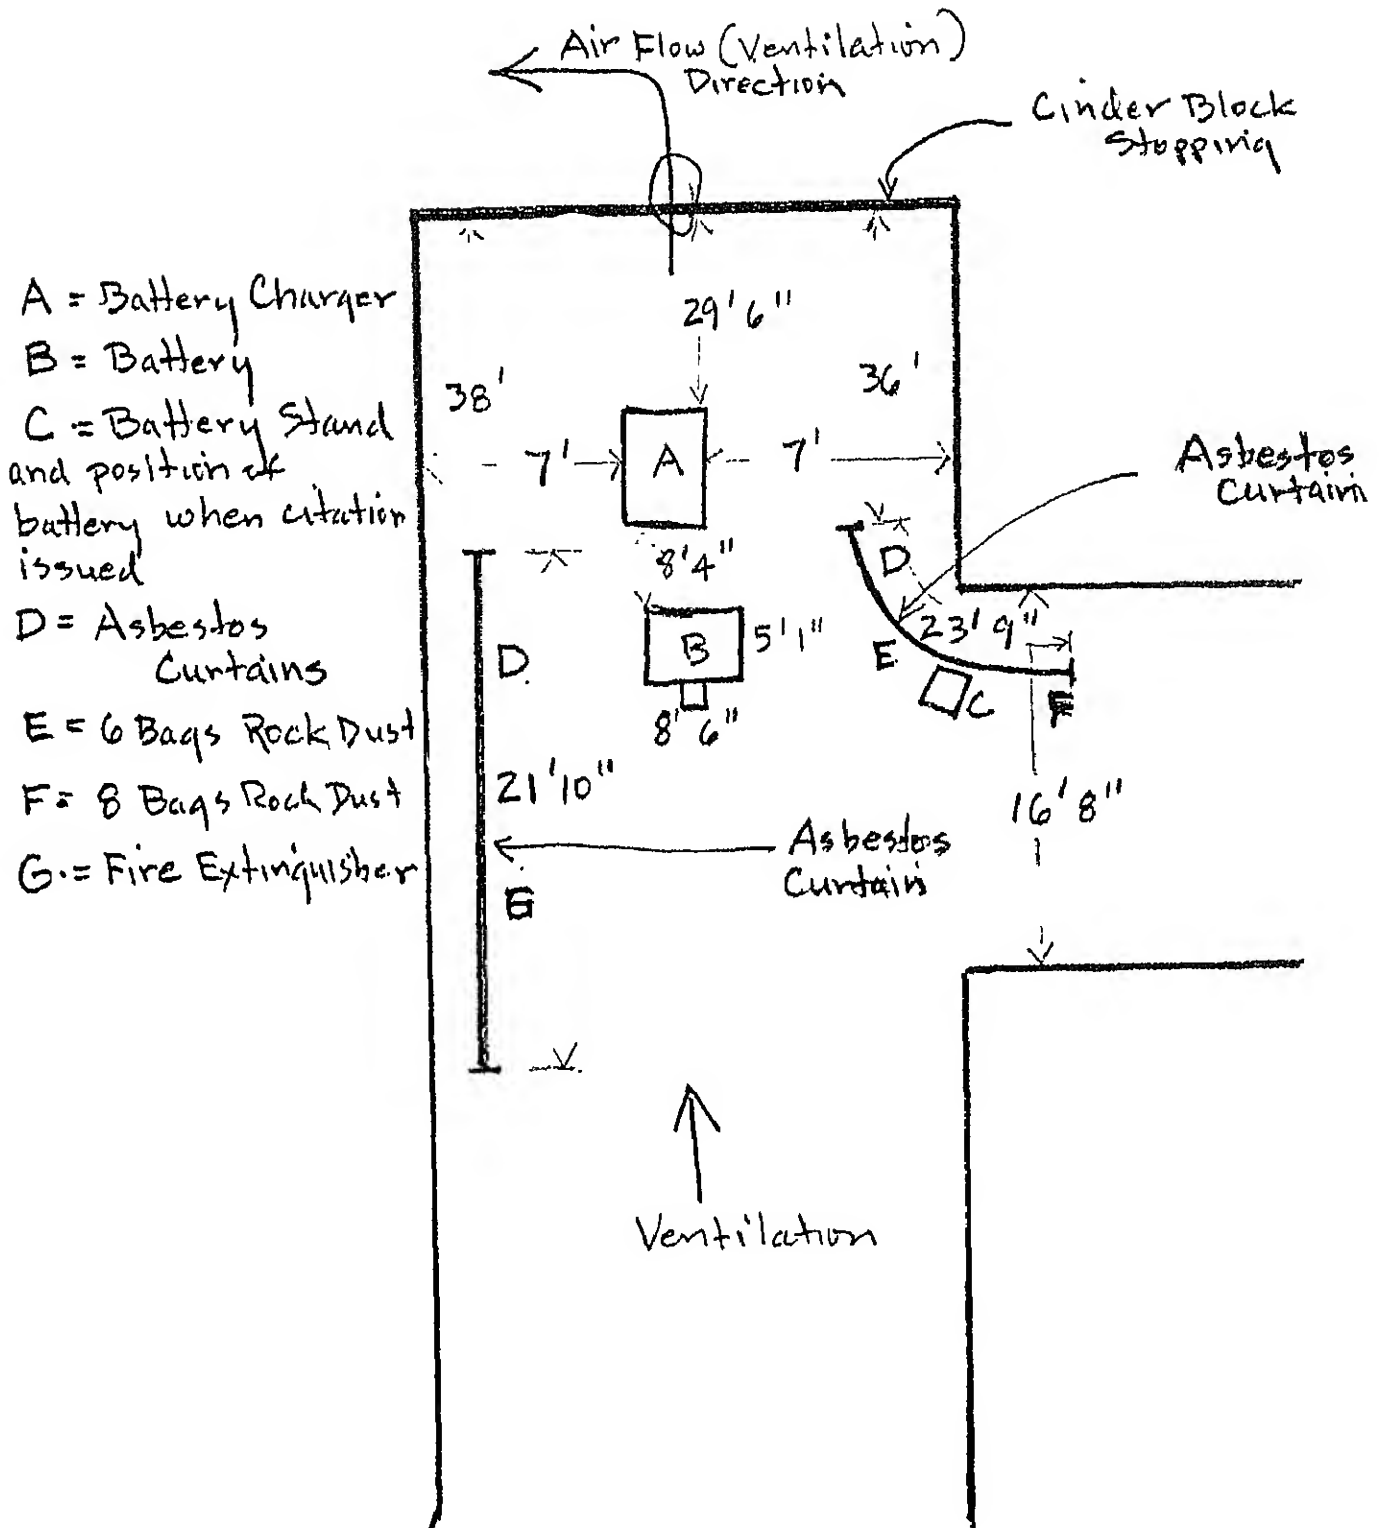 Air Flow (Ventilation)
Direction
Cinder Block
Stopping
A = Battery Charger
B = Battery
C = Battery Stand
and position of
battery when citation
issued
D = Asbestos
Curtains
E = 6 Bags Rock Dust
F = 8 Bags Rock Dust
G. = Fire Extinguisher
29' 6"
38'
36'
7'
A
7'
Asbestos
Curtain
8' 4"
D
D.
B
5' 1"
23' 9"
E
C
F
8' 6"
21' 10"
16' 8"
Asbestos
Curtain
Ventilation